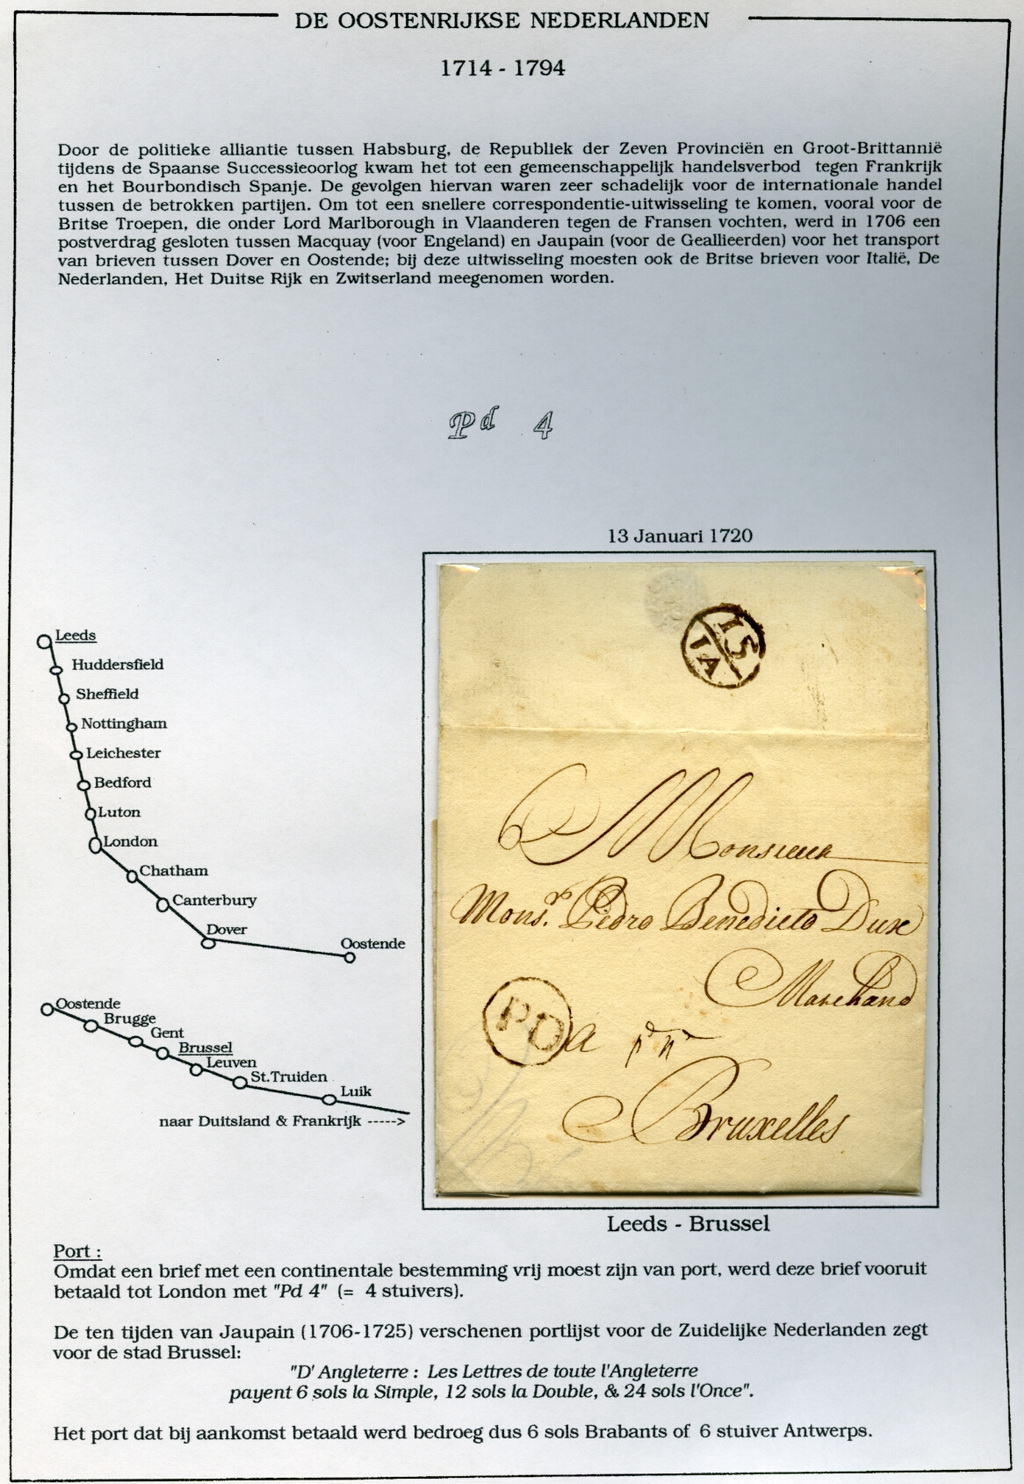 DE OOSTENRIJKSE NEDERLANDEN
1714 - 1794
Door de politieke alliantie tussen Habsburg, de Republiek der Zeven Provinciën en Groot-Brittannië
tijdens de Spaanse Successieoorlog kwam het tot een gemeenschappelijk handelsverbod tegen Frankrijk
en het Bourbondisch Spanje. De gevolgen hiervan waren zeer schadelijk voor de internationale handel
tussen de betrokken partijen. Om tot een snellere correspondentie-uitwisseling te komen, vooral voor de
Britse Troepen, die onder Lord Marlborough in Vlaanderen tegen de Fransen vochten, werd in 1706 een
postverdrag gesloten tussen Macquay (voor Engeland) en Jaupain (voor de Geallieerden) voor het transport
van brieven tussen Dover en Oostende; bij deze uitwisseling moesten ook de Britse brieven voor Italië, De
Nederlanden, Het Duitse Rijk en Zwitserland meegenomen worden.
Pd 4
13 Januari 1720
Leeds
Huddersfield
Sheffield
Nottingham
Leichester
Bedford
Luton
London
Chatham
Canterbury
Dover
Oostende
Oostende
Brugge
Gent
Brussel
Leuven
St.Truiden
Luik
naar Duitsland & Frankrijk ----->
15
IA
Monsieur
Mons.r Pedro Benedicto Dux
Marchand
PD a
Bruxelles
Leeds - Brussel
Port :
Omdat een brief met een continentale bestemming vrij moest zijn van port, werd deze brief vooruit
betaald tot London met "Pd 4" (= 4 stuivers).
De ten tijden van Jaupain (1706-1725) verschenen portlijst voor de Zuidelijke Nederlanden zegt
voor de stad Brussel:
"D' Angleterre : Les Lettres de toute l'Angleterre
payent 6 sols la Simple, 12 sols la Double, & 24 sols l'Once".
Het port dat bij aankomst betaald werd bedroeg dus 6 sols Brabants of 6 stuiver Antwerps.